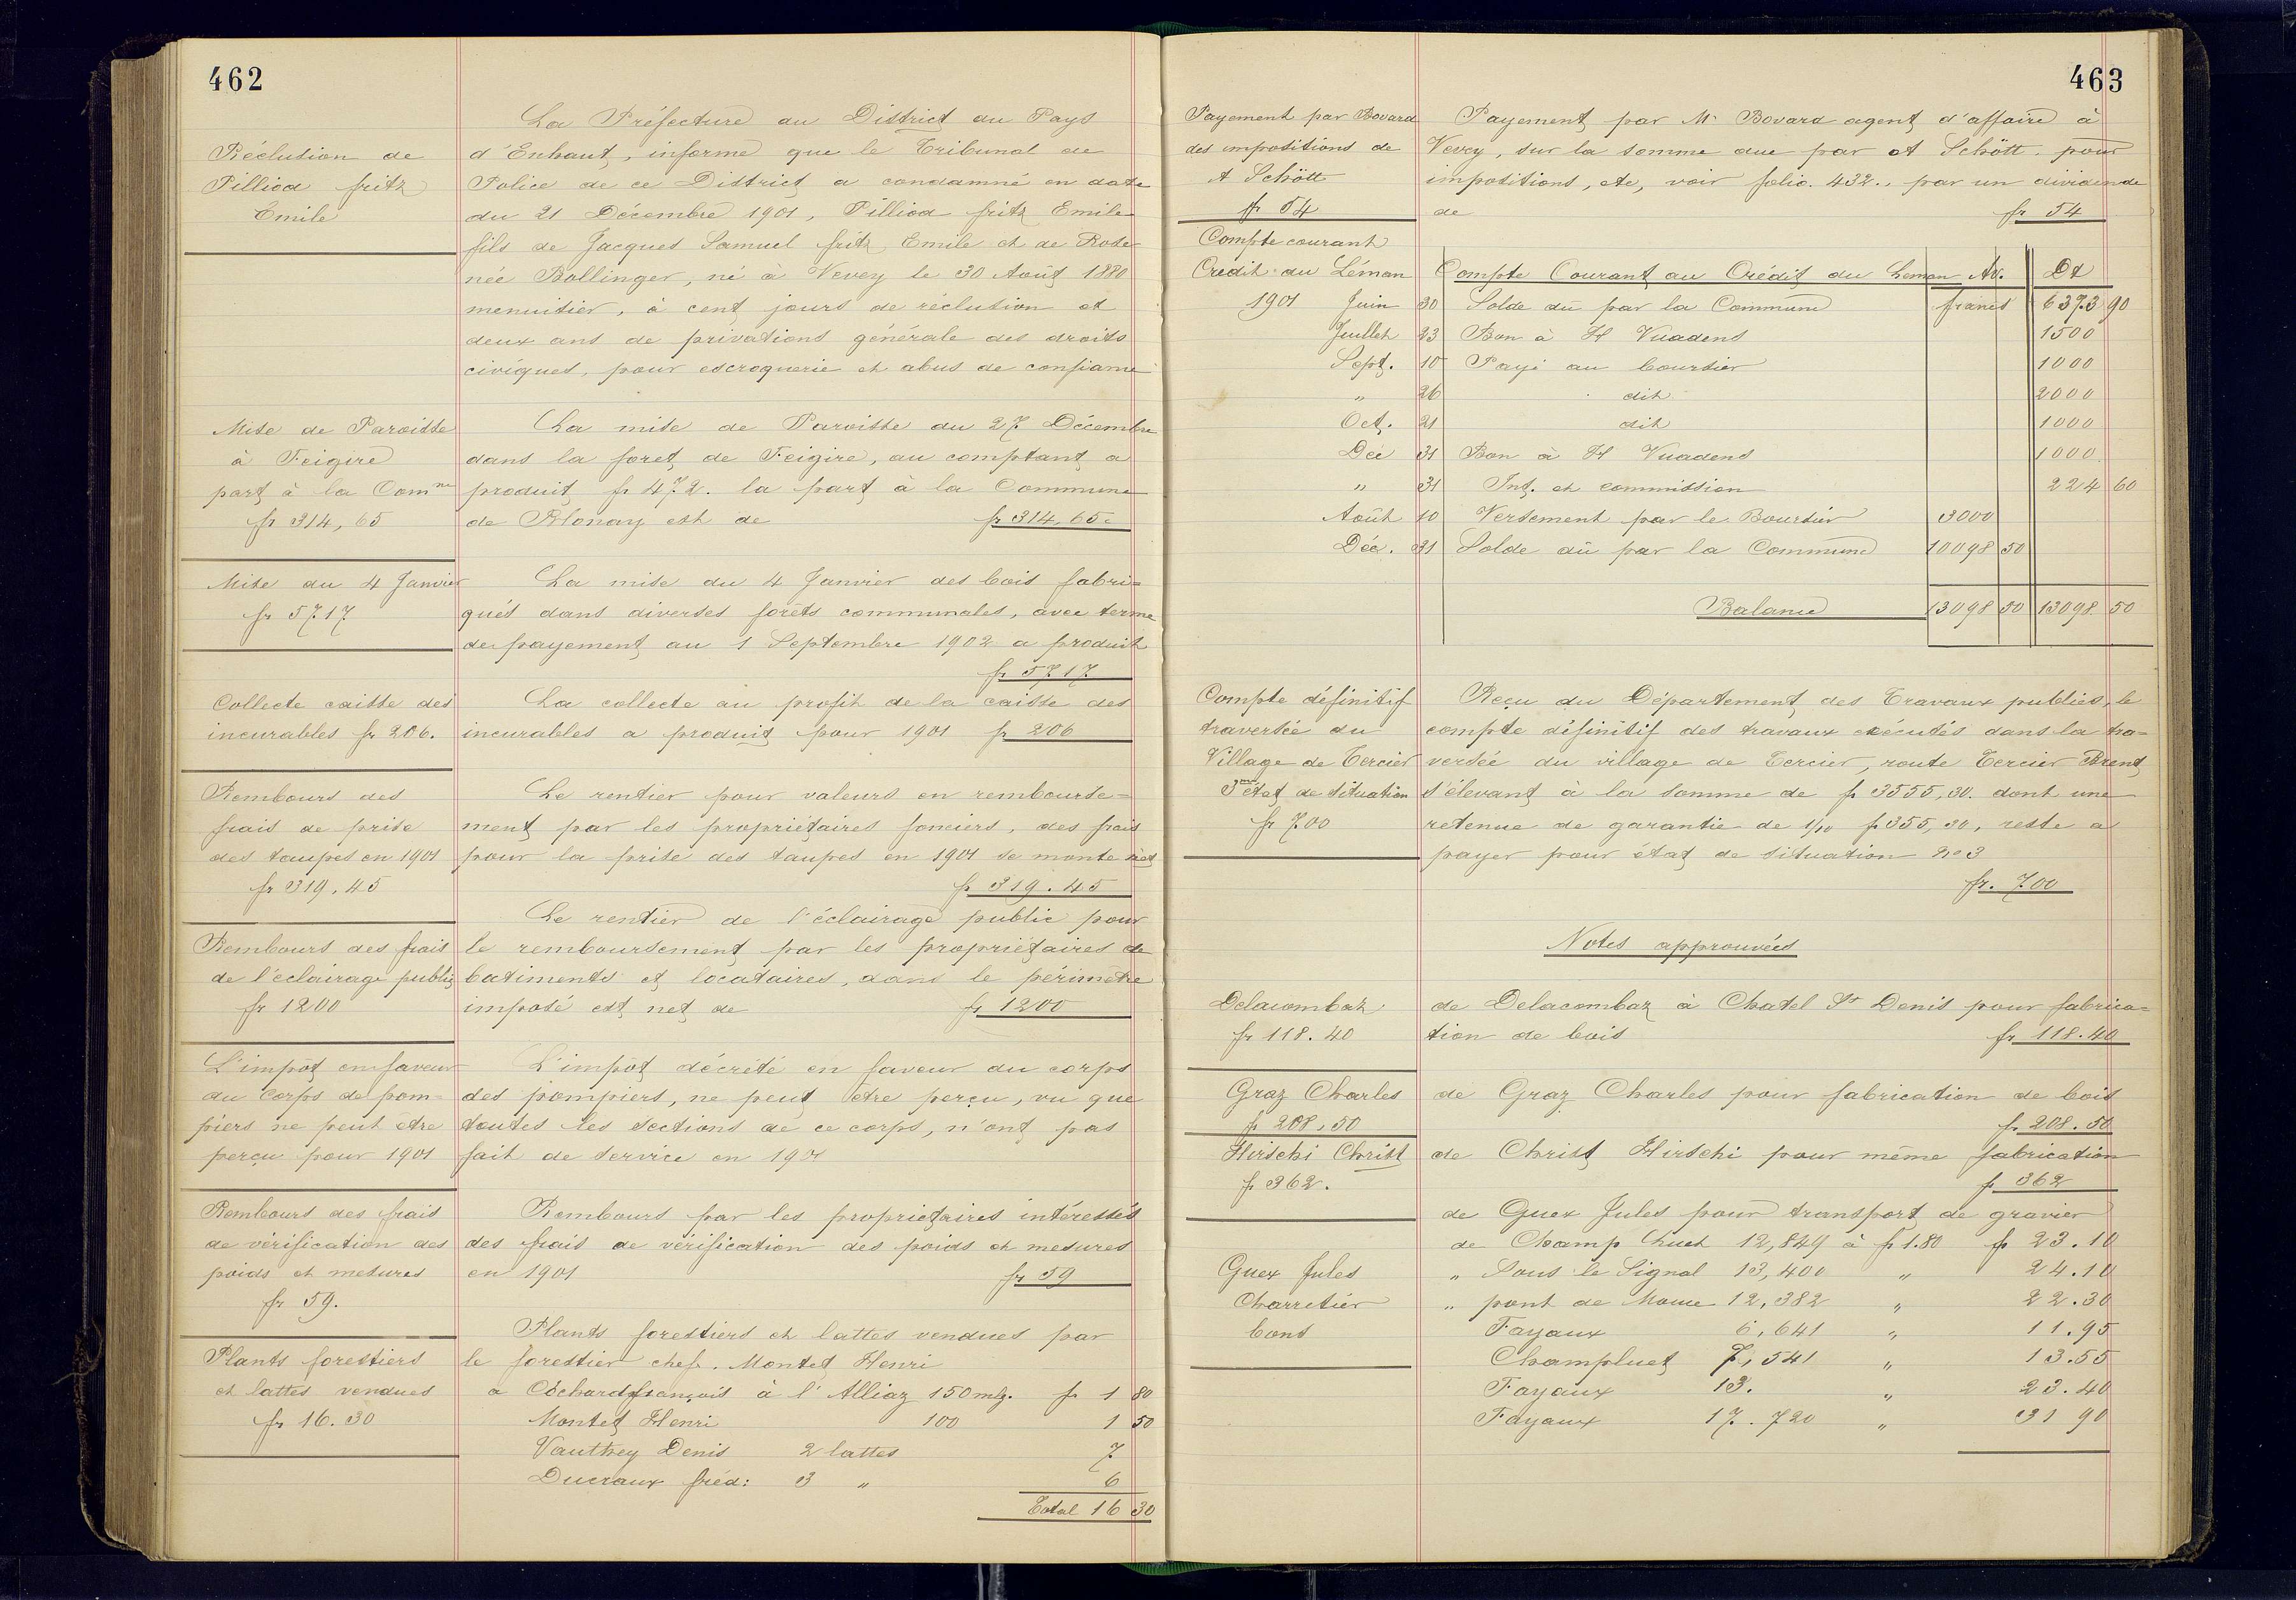 462
La Préfecture du District du Pays
Réclusion de
Pilliod fritz
Emile
d'Enhaut, informe que le Tribunal de
Police de ce District a condamné en date
du 21 Décembre 1901, Pilliod fritz Emile
fils de Jacques Samuel fritz Emile et de Rose
née Bollinger, né à Vevey le 30 Août 1880
menuisier, à cent jours de réclusion et
deux ans de privations générale des droits
civiques, pour escroquerie et abus de confiance
Mise de Paroisse
à Feigire
part à la Comne
fr 314,65
La mise de Paroisse du 27 Décembre
dans la foret de Feigire, au comptant a
produit fr 472. la part à la Commune
de Blonay est de fr 314,65.
Mise du 4 Janvier
fr 5717
La mise du 4 Janvier des bois fabri=
qués dans diverses forêts communales, avec terme
de payement au 1 Septembre 1902 a produit
fr 5717
Collecte caisse des
incurables fr 206.
La collecte au profit de la caisse des
incurables a produit pour 1901 fr 206
Rembours des
frais de prise
des taupes en 1901
fr 319.45
Le rentier pour valeurs en rembourse=
ment par les propriétaires fonciers, des frais
pour la prise des taupes en 1901 se monte net
fr 319.45
Rembours des frais
de l'éclairage public
fr 1200
Le rentier de l'éclairage public pour
le remboursement par les propriétaires de
batiments et locataires, dans le périmètre
imposé est net de fr 1200
L'impôt en faveur
du Corps de pom=
piers ne peut être
perçu pour 1901
L'impôt décrété en faveur du corps
des pompiers, ne peut être perçu, vu que
toutes les sections de ce corps, n'ont pas
fait de service en 1901
Rembours des frais
de vérification des
poids et mesures
fr 59.
Rembours par les propriétaires intéressés
des frais de vérification des poids et mesures
en 1901 fr 59
Plants forestiers
et lattes vendues
fr 16.30
Plants forestiers et lattes vendues par
le forestier chef. Montet Henri
a Cochard français à l'Alliaz 150 mlz. fr 1 80
Montet Henri 100 1 50
Vauthey Denis 2 lattes 7
Ducraux fréd: 3 " 6
Total 16 30
463
Payement par Bovard
des impositions de
A Schött
fr 54
Payement par Mr Bovard agent d'affaire à
Vevey, sur la somme due par A Schött. pour
impositions, etc, voir folio. 432., par un dividende
de fr 54
Compte courant
Crédit du Léman
Compte Courant au Crédit du Leman Av. Dt
1901 Juin 30 Solde dû par la Commune francs 6373 90
Juillet 23 Bon à H Vuadens 1500
Sept. 10 Payé au boursier 1000
" 26 dit 2000
Oct. 21 dit 1000
Déc 31 Bon à H Vuadens 1000
" 31 Int. et commission 224 60
Août 10 Versement par le Boursier 3000
Déc. 31 Solde dû par la Commune 10098 50
Balance 13098 50 13098. 50
Compte définitif
traversée du
Village de Tercier
3me état de situation
fr 700
Reçu du Département des Travaux publics, le
compte définitif des travaux exécutés dans la tra=
versée du village de Tercier, route Tercier Brent
s'élevant à la somme de fr 3555,30. dont une
retenue de garantie de 1/10 fr 355,30, reste a
payer pour état de situation No 3
fr. 700
Notes approuvées
Delacombaz
fr 118.40
de Delacombaz à Chatel St Denis pour fabrica=
tion de bois fr 118.40
Graz Charles
fr 208,50
de Graz Charles pour fabrication de bois
fr 208.50
Hirschi Christ
fr 362.
de Christ Hirschi pour même fabrication
fr 362
Guex Jules
Charretier
bons
de Guex Jules pour transport de gravier
de Champ Chuet 12,849 à fr 1.80 fr 23.10
" Sous le Signal 13,400 " 24.10
" pont de Mouse 12,382 " 22.30
Fayaux 6,641 " 11.95
Champluet 7,541 " 13.55
Fayaux 13. " 23.40
Fayaux 17.720 " 31 90